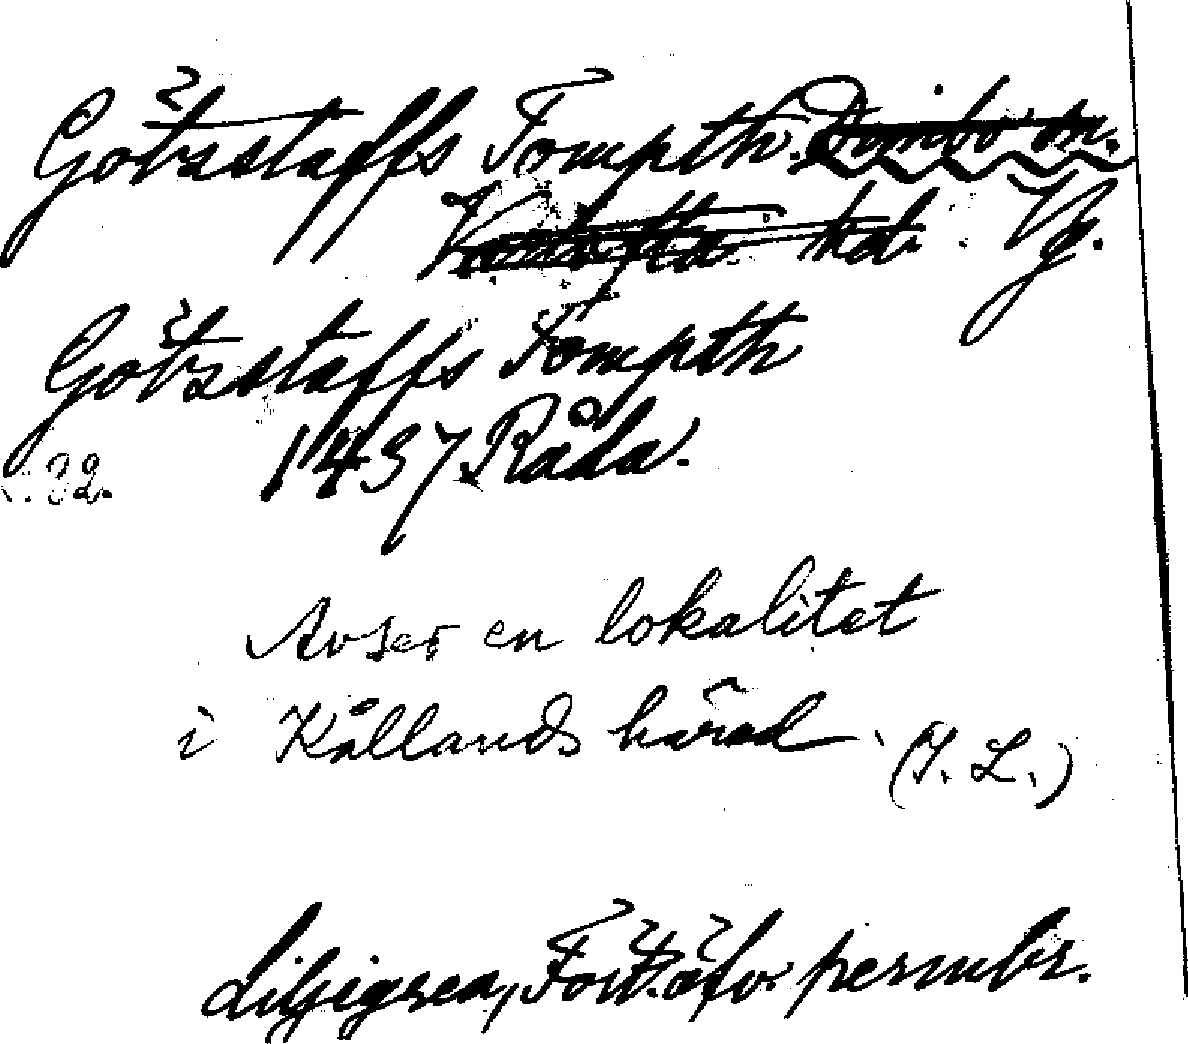 Götzstaffs Tompth. Dimbo sn.
Vartofta hd. Vg.
Götzstaffs Tompth
1437 Råda.
32.
Avser en lokalitet
i Kållands härad. (I. L.)
Liljigren, Fört. öfv. permbr.